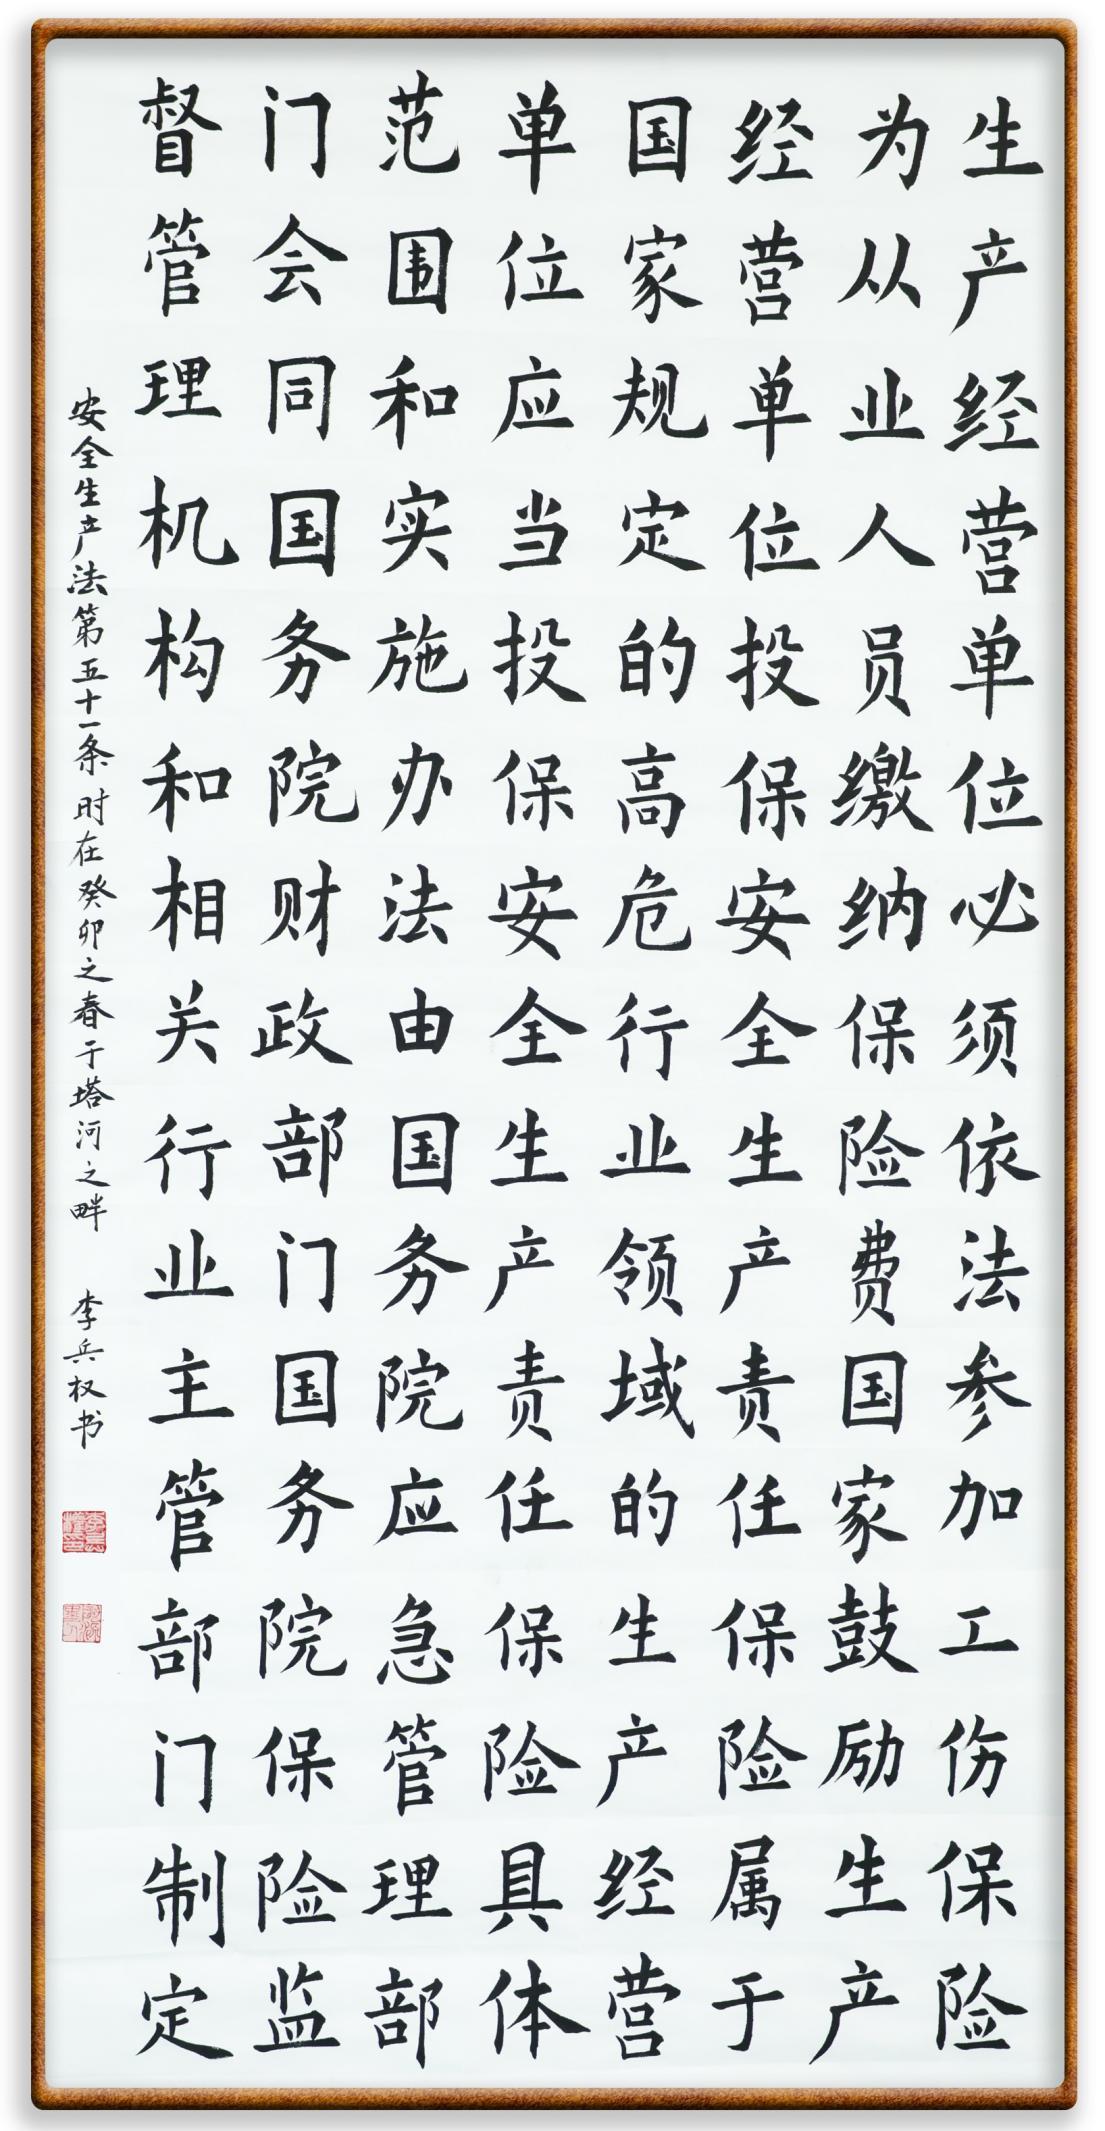 生产经营单位必须依法参加工伤保险
为从业人员缴纳保险费国家鼓励生产
经营单位投保安全生产责任保险属于
国家规定的高危行业领域的生产经营
单位应当投保安全生产责任保险具体
范围和实施办法由国务院应急管理部
门会同国务院财政部门国务院保险监
督管理机构和相关行业主管部门制定
安全生产法第五十一条时在癸卯之春于塔河之畔 李兵权书